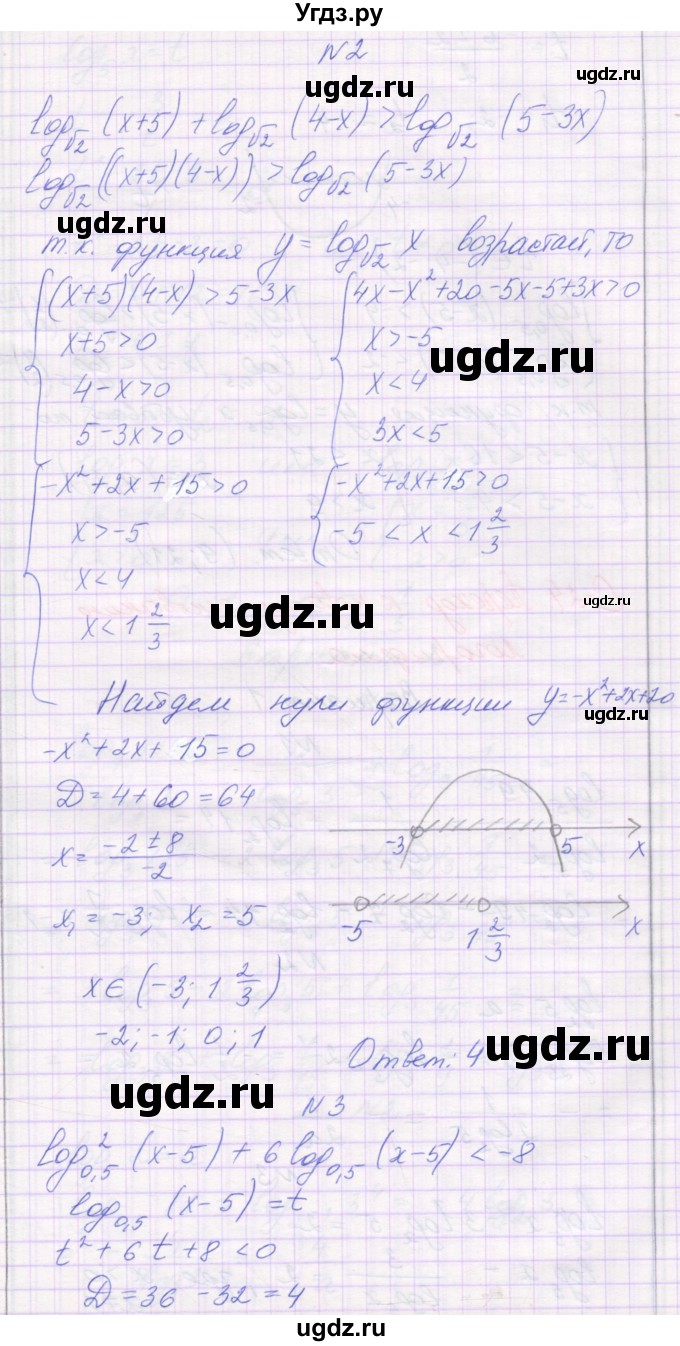 Угдз.ру
ugdz.ru
N2
log√2 (x+5) + log√2 (4-x) > log√2 (5-3x)
log√2 ((x+5)(4-x)) > log√2 (5-3x)
ugdz.ru
т.к. функция y = log√2 x возрастает, то
(x+5)(4-x) > 5-3x
x+5>0
4-x>0
5-3x>0
4x-x²+20-5x-5+3x>0
x>-5
x<4
3x<5
ugdz.ru
-x²+2x+15>0
x>-5
x<4
x<1 2/3
-x²+2x+15>0
-5<x<1 2/3
ugdz.ru
ugdz.ru
Найдем нули функции y=-x²+2x+20
ugdz.ru
-x²+2x+15=0
D=4+60=64
x= (-2±8)/(-2)
x₁=-3; x₂=5
-3 5 x
-5 1 2/3 x
x∈(-3; 1 2/3)
-2; -1; 0; 1
Ответ: 4
ugdz.ru
ugdz.ru
N3
log²0,5 (x-5) + 6 log0,5 (x-5) < -8
log0,5 (x-5) = t
t²+6t+8<0
D=36-32=4
ugdz.ru